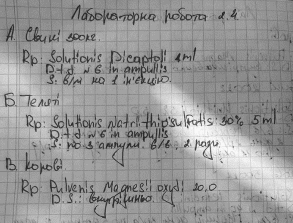 Лабораторна робота 2.4
А. Свині
Rp: Solutionis Dicaptoli 1 ml
D.t.d. № 6 in ampullis
S: в/м на 1 ін'єкцію.
Б. Теляті
Rp: Solutionis Natrii thiosulfatis 30% 5 ml
D.t.d. № 6 in ampullis
S: по 3 ампули в/в, 2 рази
В. Корові
Rp: Pulvenis Magnesii oxydi 20,0
D.S.: Внутрішньо.